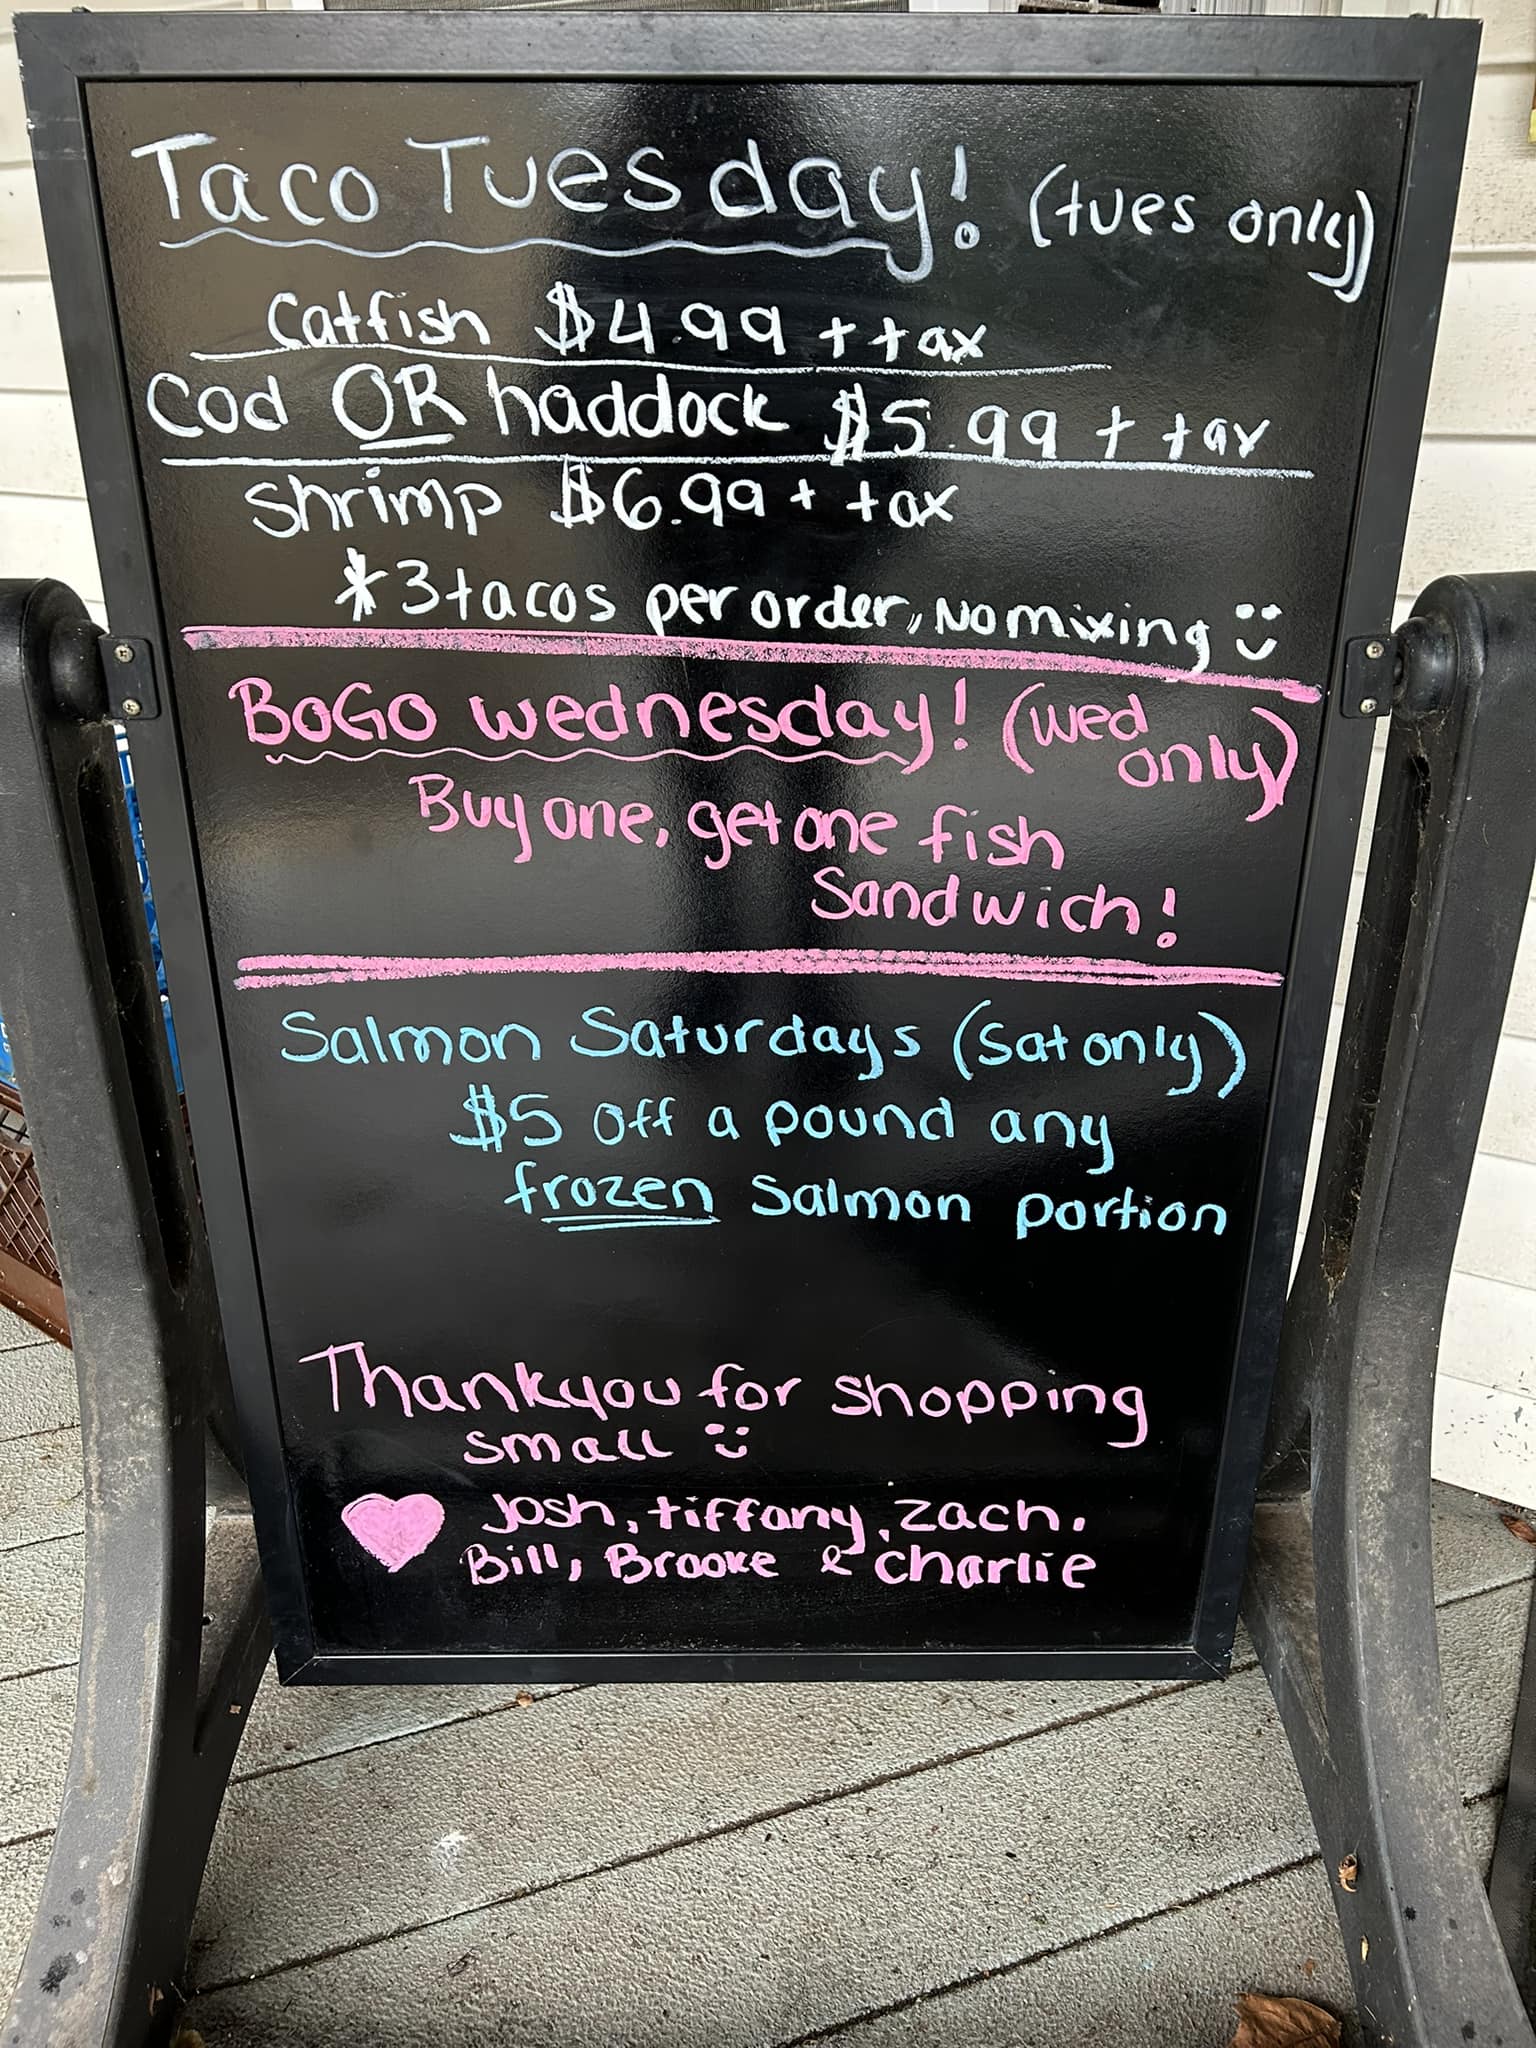 Taco Tuesday! (tues only)
Catfish $4.99 + tax
Cod OR haddock $5.99 + tax
Shrimp $6.99 + tax
*3 tacos per order, No mixing
BoGo wednesday! (wed only)
Buy one, get one fish
Sandwich!
Salmon Saturdays (Sat only)
$5 off a pound any
frozen Salmon portion
Thankyou for shopping
small
Josh, tiffany, zach,
Bill, Brooke & Charlie